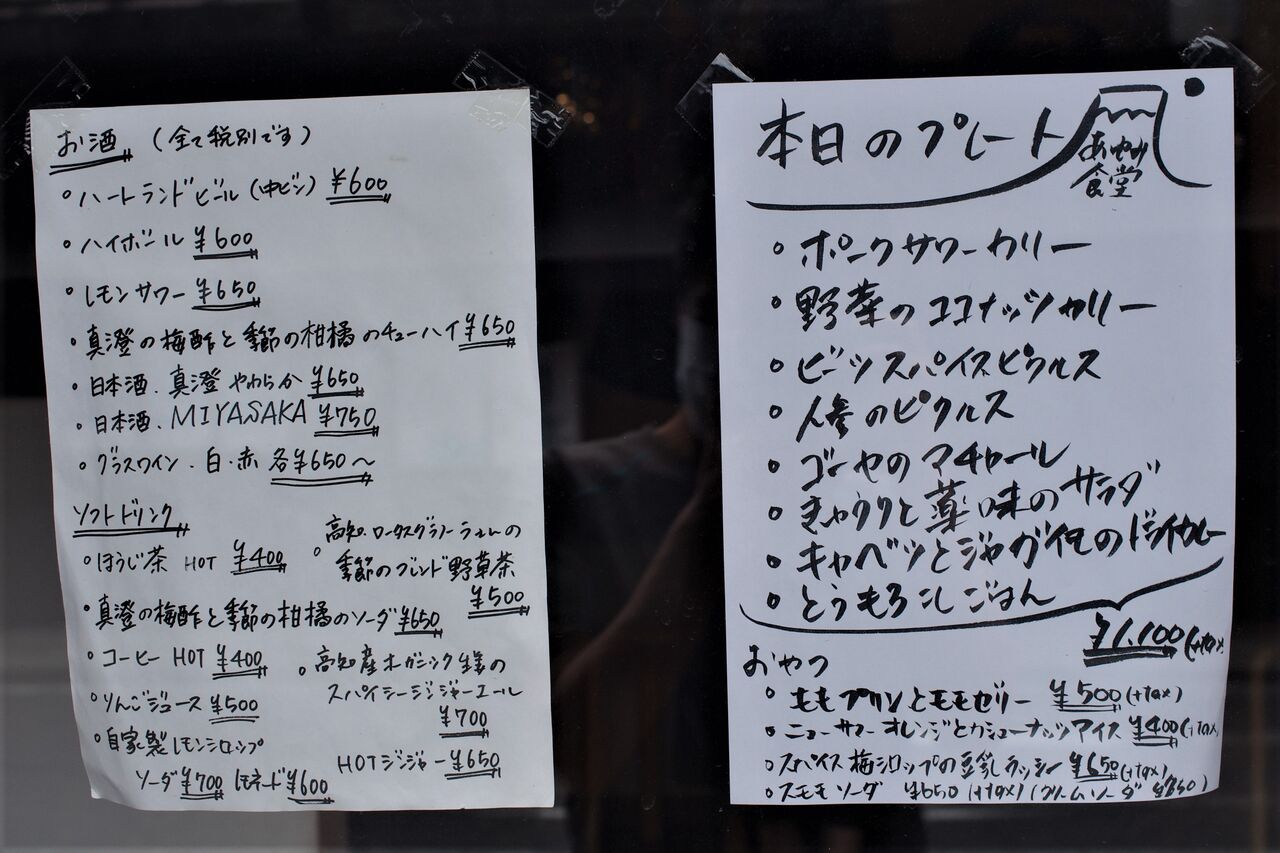 お酒 (全て税別です)
◦ハートランドビール(中ビン) ¥600
◦ハイボール ¥600
◦レモンサワー ¥650
・真澄の梅酢と季節の柑橘のチューハイ ¥650
・日本酒.真澄 やわらか ¥650
・日本酒.MIYASAKA ¥750
◦グラスワイン.白・赤 各¥650〜
ソフトドリンク
◦ほうじ茶 HOT ¥400
◦高知ロータスグラノーラさんの
季節のブレンド野草茶
¥500
・真澄の梅酢と季節の柑橘のソーダ ¥650
◦コーヒー HOT ¥400
◦高知産オーガニック生姜の
スパイシージンジャーエール
¥700
◦りんごジュース ¥500
◦自家製レモンシロップ
ソーダ ¥700 レモネード ¥600
HOTジンジャー ¥650
本日のプレート
食堂
◦ポークサワーカリー
◦野菜のココナッツカリー
◦ビーツスパイスピクルス
◦人参のピクルス
◦ゴーヤのアチャール
◦きゅうりと薬味のサラダ
◦キャベツとジャガイモのドライカレー
◦とうもろこしごはん
¥1,100(+tax
おやつ
◦ももプリンとモモゼリー ¥500(+tax)
◦ニューサマーオレンジとカシューナッツアイス ¥400(+tax
◦スパイス梅シロップの豆乳ラッシー ¥650(+tax)
◦スモモソーダ ¥650(+tax)(クリームソーダ